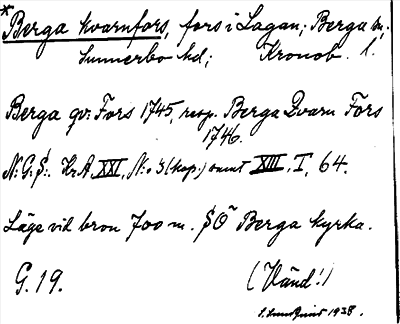 * Berga kvarnfors, fors i Lagan; Berga sn,
Sunnerbo hd; Kronob. l.
Berga qv: Fors 1745, resp. Berga Qvarn Fors
1746.
N:G:S:. Kr.A. XXI, N:o 3 (kop.) samt XIII, I, 64.
Läge vid bron 700 m. SÖ Berga kyrka.
G. 19. (Vänd!)
1938.